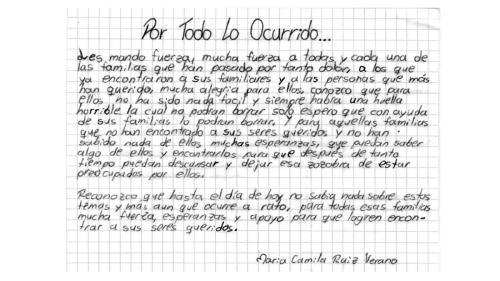 Por Todo Lo Ocurrido...
Les mando fuerza, mucha fuerza a todas y cada una de
las familias que han pasado por tanto dolor, a los que
ya encontraron a sus familiares y a las personas que más
han querido, mucha alegria para ellos, conozco que para
ellos no ha sido nada facil y siempre habra una huella
horrible la cual no podran borrar solo espero que con ayuda
de sus familias lo podran borrar. y para aquellas familias
que no han encontrado a sus seres queridos y no han
sabido nada de ellos muchas esperanzas, que puedan saber
algo de ellos y encontrarlos para que después de tanto
tiempo puedan descansar y dejar esa zozobra de estar
preocupados por ellos.
Reconozco que hasta el día de hoy no sabia nada sobre estos
temas y más aun que ocurre a rato, para todas esas familias
mucha fuerza, esperanzas y apoyo para que logren encon-
trar a sus seres queridos.
Maria Camila Ruiz Verano